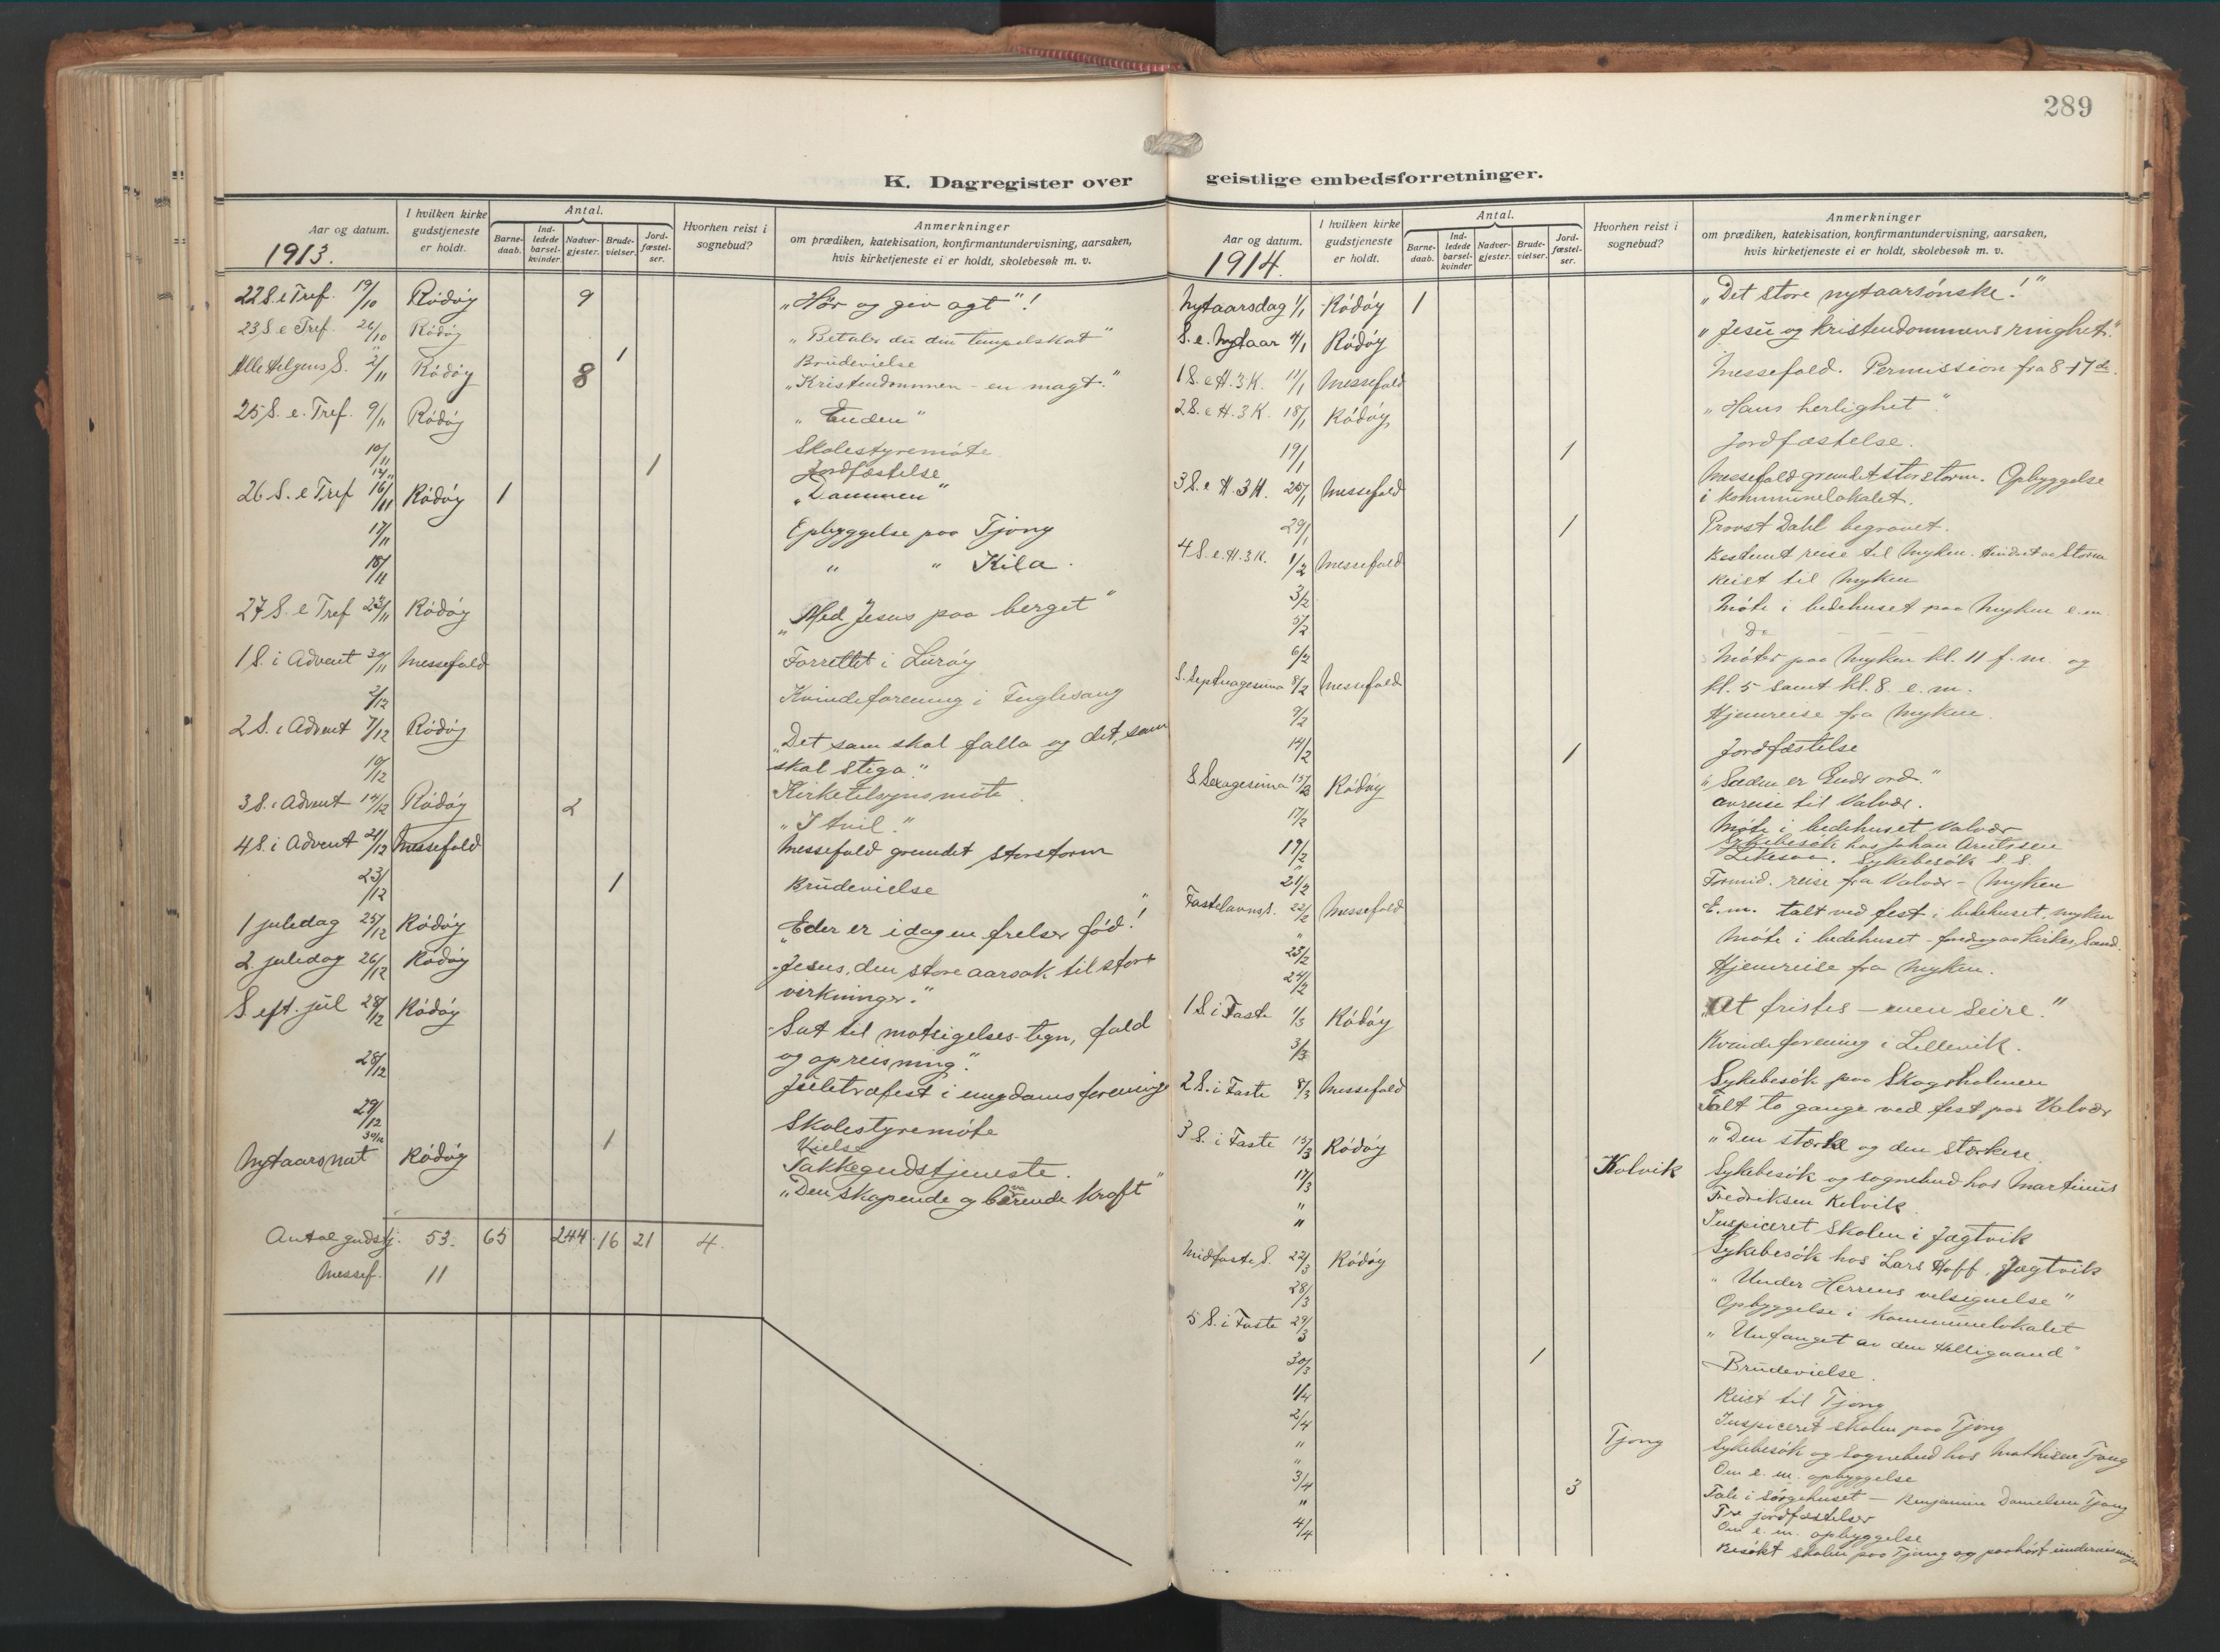 289
K. Dagregister over geistlige embedsforretninger.
Aar og datum.
1913.
I hvilken kirke gudstjeneste er holdt.
Antal.
Barne-daab.
Ind-ledede barsel-kvinder.
Nadver-gjester.
Brude-vielser.
Jord-fæstel-ser.
Hvorhen reist i sognebud?
Anmerkninger
om prædiken, katekisation, konfirmantundervisning, aarsaken,
hvis kirketjeneste ei er holdt, skolebesøk m. v.
22 S. e Tref. 19/10 Rödöy 9 "Hör og giv agt"!
23 S e Tref. 26/10 Rödöy "Betaler du din tempelskat"
" 1 Brudevielse
Alle Helgens S. 2/11 Rödöy 8 "Kristendommen - en magt."
25 S. e. Tref. 9/11 Rödöy "Enden"
10/11 Skolestyremöte
14/11 1 Jordfæstelse
26 S. e Tref 16/11 Rödöy 1 "Dommen"
17/11 Opbyggelse paa Tjong
18/11 " " Kila.
27 S. e Tref 23/11 Rödöy "Med Jesus paa berget"
1 S. i Advent 30/11 Messefald Forrettet i Luröy
2/12 Kvindeforening i Fuglesang
2 S. i Advent 7/12 Rödöy "Det som skal falla og det, som
skal stiga."
10/12 Kirketilsynsmöte
3 S. i Advent 14/12 Rödöy 2 "I tvil."
4 S. i Advent 21/12 Messefald Messefald grundet storstorm
23/12 1 Brudevielse
1 juledag 25/12 Rödöy "Eder er idag en frelser föd!"
2 juledag 26/12 Rödöy "Jesus, den store aarsak til store
virkninger."
S eft. jul 28/12 Rödöy "Sat til motsigelses-tegn, fald
og opreisning."
28/12 Juletræfest i ungdomsforening
29/12 Skolestyremöte
30/12 1 Vielse
Nytaarsnat Rödöy Takkegudstjeneste.
"Den skapende og bærende kraft"
Antal gudstj. 53. 65 244 16 21 4.
Messef. 11
Aar og datum.
1914.
I hvilken kirke gudstjeneste er holdt.
Antal.
Barne-daab.
Ind-ledede barsel-kvinder
Nadver-gjester.
Brude-vielser.
Jord-fæstel-ser.
Hvorhen reist i sognebud?
Anmerkninger
om prædiken, katekisation, konfirmantundervisning, aarsaken,
hvis kirketjeneste ei er holdt, skolebesøk m. v.
Nytaarsdag 1/1 Rödöy 1 "Det store nytaarsönske!"
S. e. Nytaar 4/1 Rödöy "Jesu og kristendommens ringhet."
1 S. e H. 3 K. 11/1 Messefald Messefald. Permission fra 8-17de.
2 S. e H. 3 K. 18/1 Rödöy "Hans herlighet"
19/1 1 Jordfæstelse.
3 S. e H. 3 K. 25/1 Messefald Messefald grundet storstorm. Opbyggelse
i kommunelokalet.
29/1 1 Provst Dahl begravet.
4 S. e. H. 3 K. 1/2 Messefald Bestemt reise til Myken. Hindret av Storm
3/2 Reist til Myken
5/2 Möte i bedehuset paa Myken e.m.
6/2 Do
S. Septuagesima 8/2 Messefald Möter paa Myken kl. 11 f. m. og
kl. 5 samt kl. 8. e. m.
9/2 Hjemreise fra Myken
14/2 1 Jordfæstelse
S Sexagesima 15/2 Rödöy "Sæden er Guds ord."
17/2 avreise til Valvær.
Möte i bedehuset Valvær
19/2 Sykebesök hos Johan Arntssen
. Sykebesök s. s.
21/2 Formid. reise fra Valvær - Myken
Fastelavns S. 22/2 Messefald E. m. talt ved fest i bedehuset, Myken
" Möte i bedehuset
23/2 Hjemreise fra Myken.
24/2
1 S. i Faste 1/3 Rödöy "At fristes - men seire."
3/3 Kvindeforening i Lillevik.
2 S. i Faste 8/3 Messefald Sykebesök paa Skogsholmen
Talt to gange ved fest paa Valvær
3 S. i Faste 15/3 Rödöy "Den stærke og den stærkere.
17/3 Kolvik Sykebesök og sognebud hos Martinus
Fredriksen Kolvik.
" Inspiceret skolen i Jægtvik
" Sykebesök hos Lars Hoff, Jægtvik
Midfaste S. 22/3 Rödöy "Under Herrens velsignelse"
28/3 Opbyggelse i kommunelokalet
5 S. i Faste 29/3 "Unfanget av den Helligaand"
30/3 1 Brudevielse.
1/4 Reist til Tjong
2/4 Inspiceret skolen paa Tjong
" Tjong Sykebesök og sognebud hos Mathisen Tjong
" Om e. m. opbyggelse
3/4 3 Tale i sörgehuset - Benjamin Danielsen Tjong
Tre jordfæstelser
" Om e. m. opbyggelse
4/4 Besökt skolen paa Tjong og paahört undervisningen